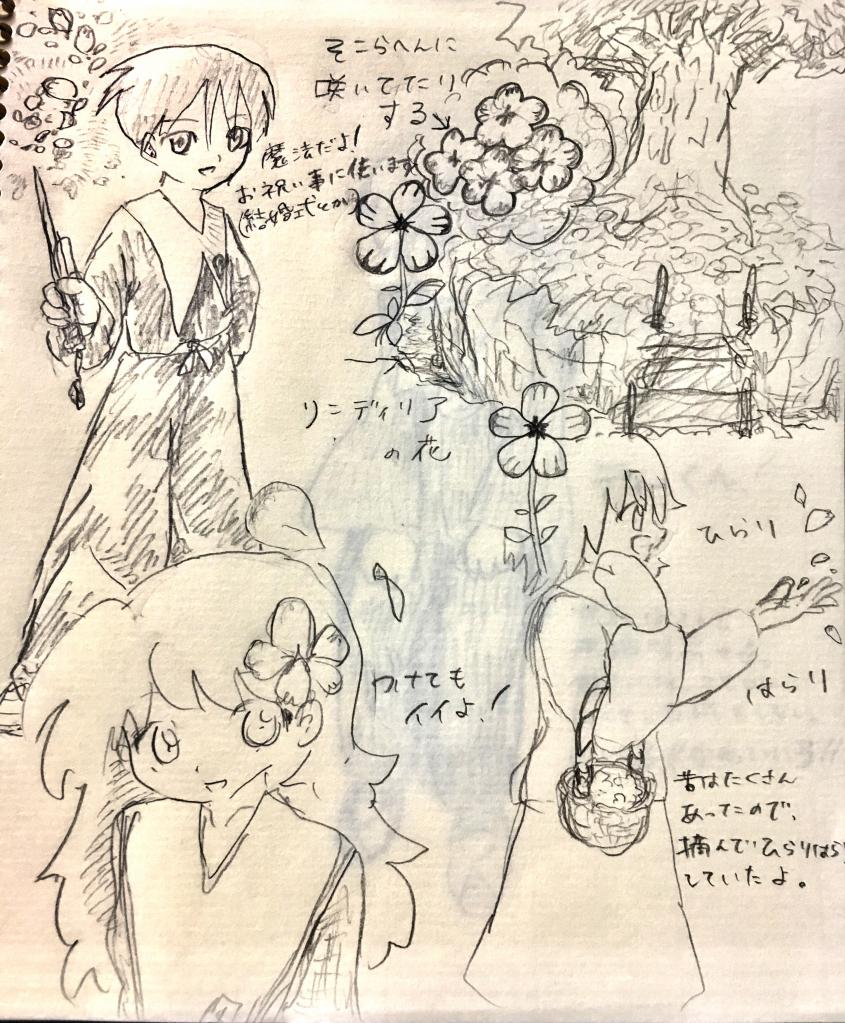 そこらへんに
咲いてたり
する
魔法だよ!
お祝い事に使います
(結婚式とか)
リンディリア
の花
ひらり
はらり
つけても
イイよ!
昔はたくさん
あったので、
摘んでひらりはらり
していたよ。